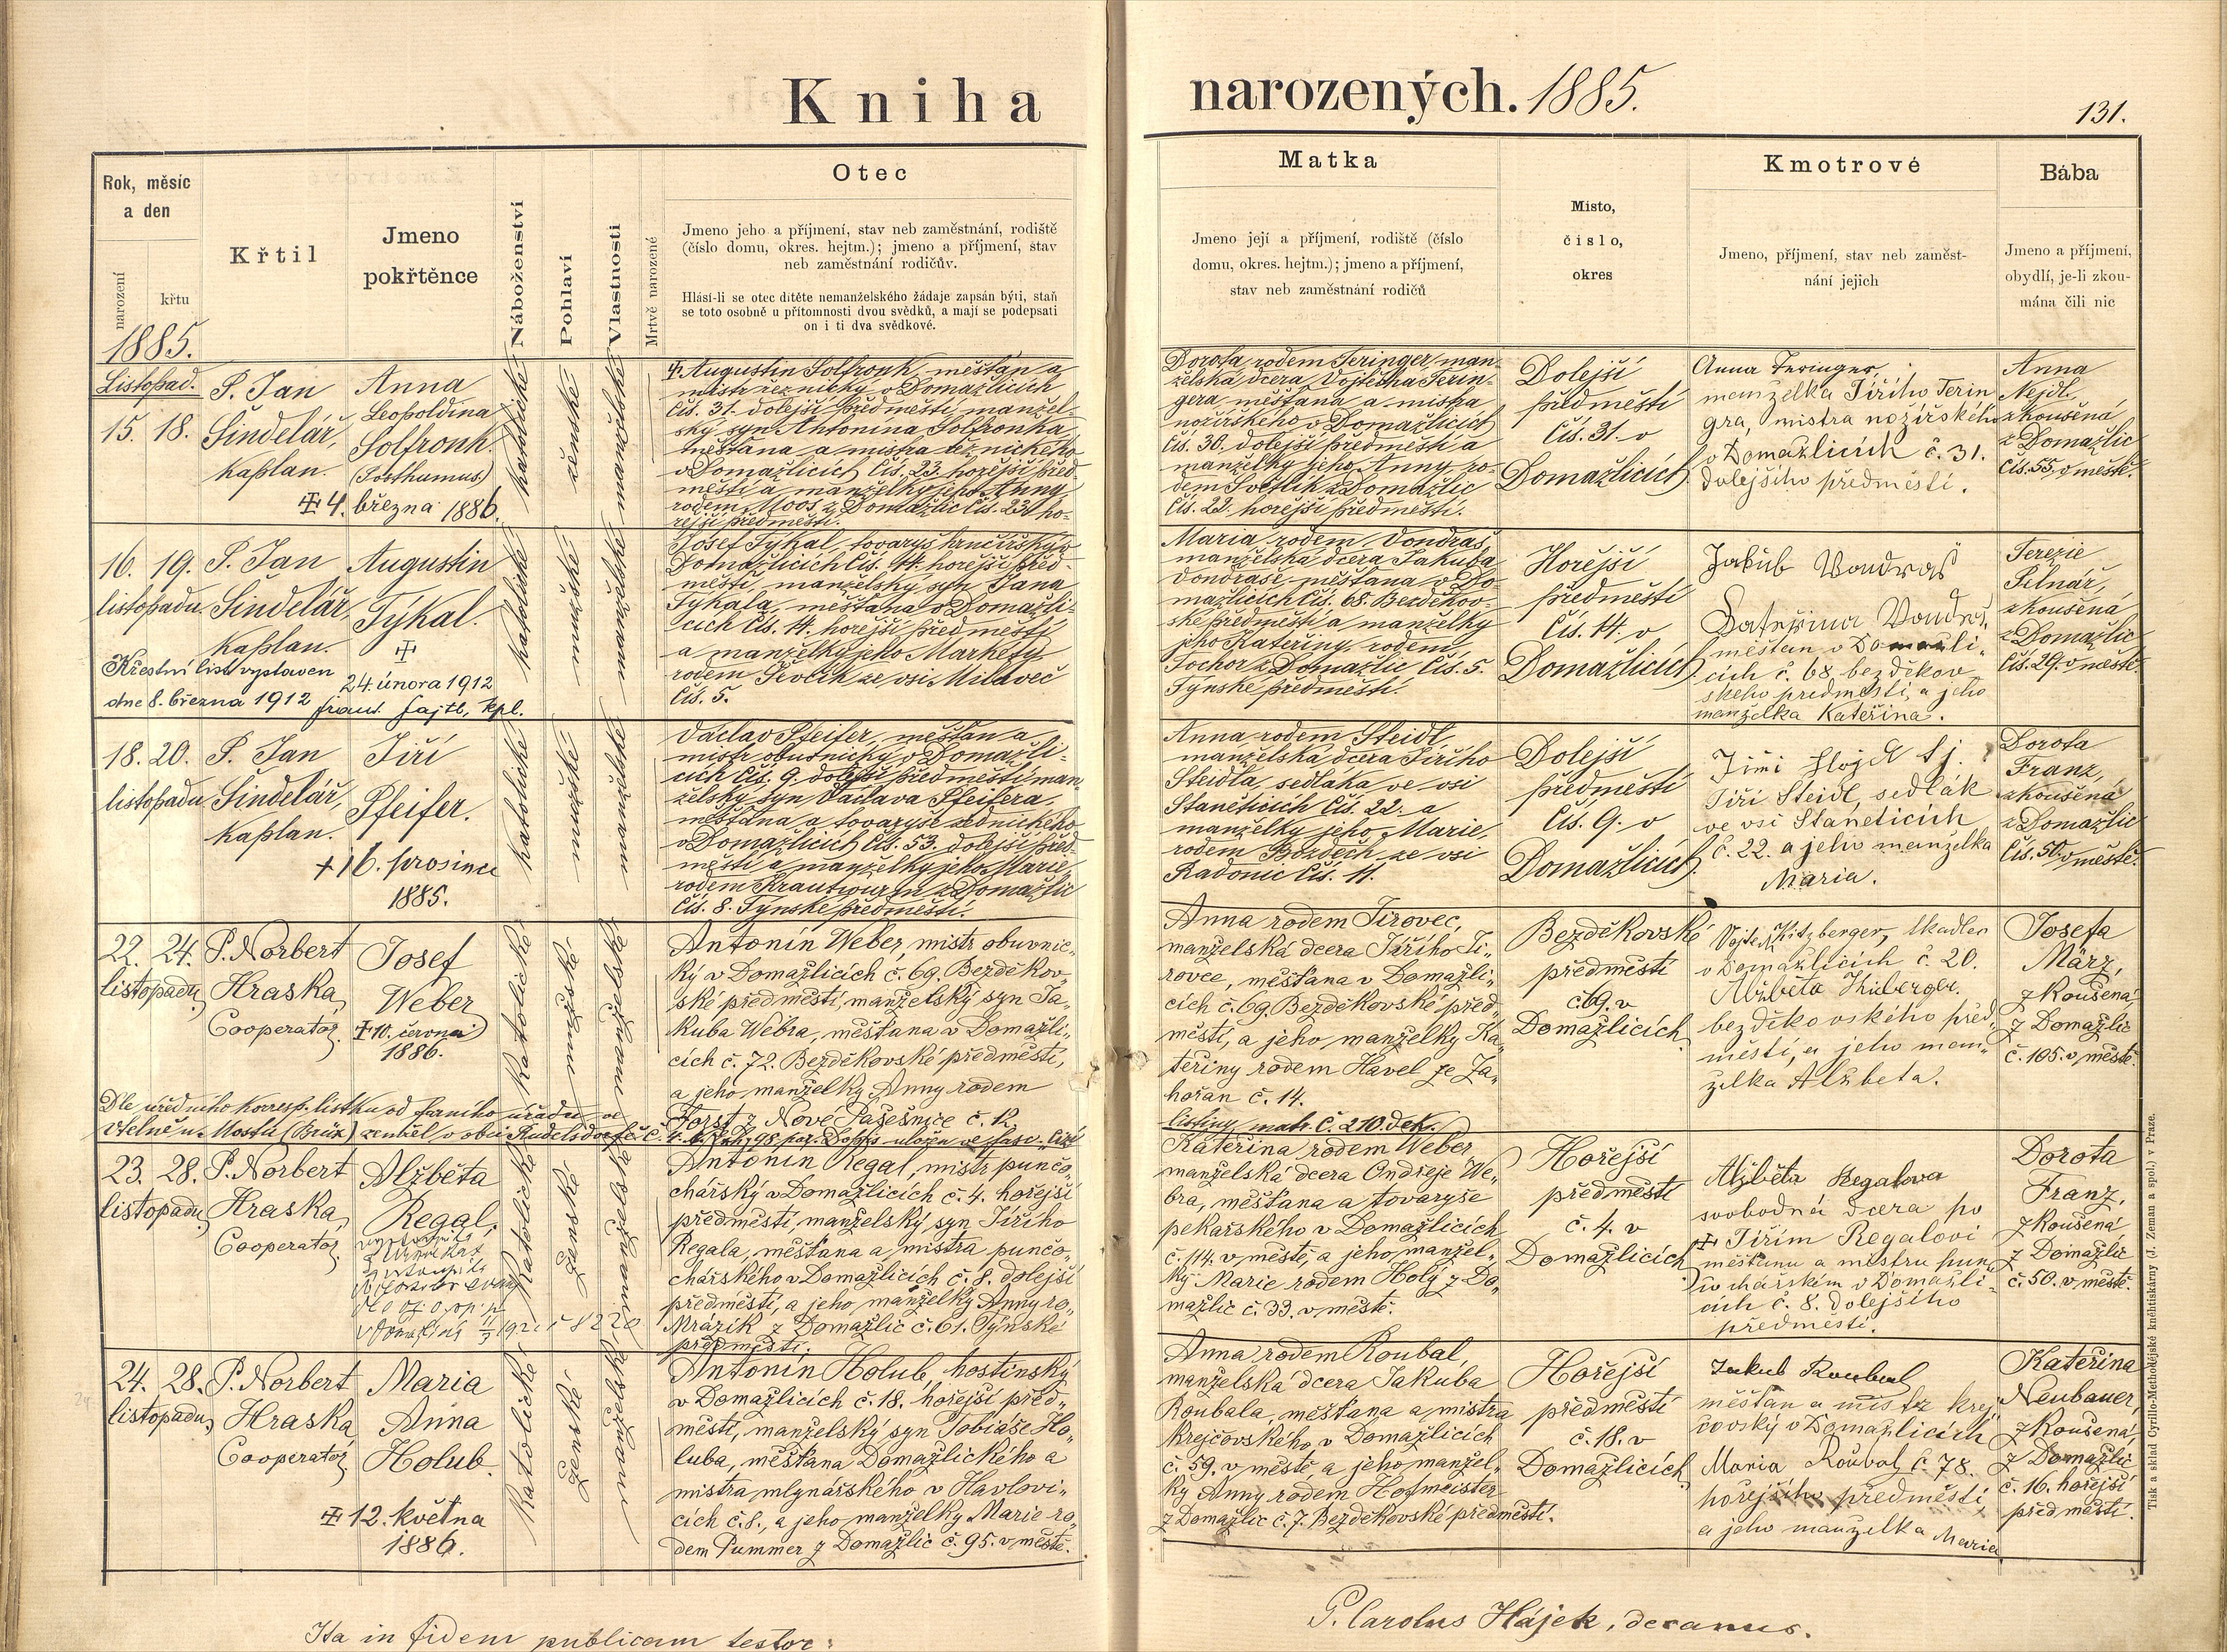 Kniha
narozených. 1885.
131.
Rok, měsíc
a den
narození
křtu
1885.
Křtil
Jmeno
pokřtěnce
Náboženství
Pohlaví
Vlastnosti
Mrtvě narozené
Otec
Jmeno jeho a příjmení, stav neb zaměstnání, rodiště
(číslo domu, okres. hejtm.); jmeno a příjmení, stav
neb zaměstnání rodičův.
Hlásí-li se otec dítěte nemanželského žádaje zapsán býti, staň
se toto osobně u přítomnosti dvou svědků, a mají se podepsati
on i ti dva svědkové.
Matka
Jmeno její a příjmení, rodiště (číslo
domu, okres. hejtm.); jmeno a příjmení,
stav neb zaměstnání rodičů
Místo,
číslo,
okres
Kmotrové
Jmeno, příjmení, stav neb zaměst-
nání jejich
Bába
Jmeno a příjmení,
obydlí, je-li zkou-
mána čili nic
Listopad.
15. 18.
P. Jan
Šindelář,
kaplan.
Anna
Leopoldina
Solfronk.
(Posthumus)
4. března 1886.
katolické
ženské
Augustin Solfronk, měšťan a
mistr řeznický v Domažlicích
čís. 31. dolejší předměstí, manžel-
ský syn Antonína Solfronka,
měšťana a mistra řeznického
v Domažlicích čís. 23. hořejší před-
městí a manželky jeho Anny
rodem Moos z Domažlic čís. 23. ho-
řejší předměstí.
Dorota rodem Teringer, man-
želská dcera Vojtěcha Terin-
gera, měšťana a mistra
nožířského v Domažlicích
čís. 30. dolejší předměstí a
manželky jeho Anny ro-
dem Světlík z Domažlic
čís. 22. hořejší předměstí.
Dolejší
předměstí
čís. 31. v
Domažlicích
Anna Teringer,
manželka Jiřího Terin
gra, mistra nožířského
v Domažlicích č. 31.
dolejšího předměstí.
Anna
Nejdl
zkoušená
z Domažlic
čís. 55. v městě.
16. 19.
listopadu
P. Jan
Šindelář,
kaplan.
Augustin
Týkal.
24. února 1912
Křestní list vystaven
dne 8. března 1912 Frant. Fajtl, kpl.
katolické
mužské
Josef Týkal, tovaryš hrnčířský v
Domažlicích čís. 14. hořejší před-
městí, manželský syn Jana
Týkala, měšťana v Domažli-
cích čís. 14. hořejší předměstí
a manželky jeho Markéty
rodem Ševčík ze vsi Milavec
čís. 5.
Maria rodem Vondraš
manželská dcera Jakuba
Vondraše, měšťana v Do-
mažlicích čís. 68. Bezděkov-
ské předměstí a manželky
jeho Kateřiny, rodem
Sochor z Domažlic čís. 5.
Týnské předměstí.
Hořejší
předměstí
čís. 14. v
Domažlicích
Jakub Vondraš
měšťan v Domažli-
cích č. 68. bezděkov-
ského předměstí, a jeho
manželka Kateřina.
Terezie
Pilnář,
zkoušená
z Domažlic
čís. 29. v městě.
18. 20.
listopadu
P. Jan
Šindelář,
kaplan.
Jiří
Pfeifer.
+ 16. prosince
1885.
katolické
mužské
Václav Pfeifer, měšťan a
mistr obuvnický v Domažli-
cích čís. 9. dolejší předměstí, man
želský syn Václava Pfeifera,
měšťana a tovaryše zednického
v Domažlicích čís. 53. dolejší před-
městí a manželky jeho Marie,
rodem Krautwurm z Domažlic
čís. 8. Týnské předměstí.
Anna rodem Steidl,
manželská dcera Jiřího
Steidla, sedláka ve vsi
Staněticích čís. 22. a
manželky jeho Marie,
rodem Bozděch ze vsi
Radonic čís. 11.
Dolejší
předměstí
čís. 9. v
Domažlicích
Jiří Steidl, sedlák
ve vsi Staněticích
č. 22. a jeho manželka
Maria.
Dorota
Franz,
zkoušená
z Domažlic
čís. 50. v městě.
22. 24.
listopadu
P. Norbert
Hraska,
Cooperator.
Josef
Weber
10. června
1886.
Katolické
mužské
Antonín Weber, mistr obuvnic-
ký v Domažlicích č. 69. Bezděkov-
ské předměstí, manželský syn Ja-
kuba Webra, měšťana v Domažli-
cích č. 72. Bezděkovské předměstí,
a jeho manželky Anny rodem
Forst z Nové Pasečnice č. 12.
Dle úředního korresp. lístku od farního úřadu ve
Anna rodem Jírovec,
manželská dcera Jiřího Jí-
rovce, měšťana v Domažli-
cích č. 69. Bezděkovské před-
městí, a jeho manželky Ka-
teřiny rodem Havel ze Za-
hořan č. 14.
listiny matr. č. 210. dek.
Bezděkovské
předměstí
č. 69. v
Domažlicích
Vojtěch Kitzberger, tkadlec
v Domažlicích č. 20.
bezděkovského před-
městí, a jeho man-
želka Alžběta.
Josefa
März,
zkoušená
z Domažlic
č. 105. v městě.
23. 28.
listopadu
P. Norbert
Hraska,
Cooperator.
Alžběta
Regal,
Katolické
ženské
Antonín Regal, mistr punčo-
chářský v Domažlicích č. 4. hořejší
předměstí, manželský syn Jiřího
Regala, měšťana a mistra punčo-
chářského v Domažlicích č. 8. dolejší
předměstí, a jeho manželky Anny ro-
Mrázik z Domažlic č. 61. Týnské
předměstí.
Kateřina rodem Weber,
manželská dcera Ondřeje We-
bra, měšťana a tovaryše
pekařského v Domažlicích
č. 114. v městě, a jeho manžel-
ky Marie rodem Holý z Do-
mažlic č. 33. v městě.
Hořejší
předměstí
č. 4. v
Domažlicích
Alžběta Regalova
svobodná dcera po
Jiřím Regalovi
měšťanu a mistru pun-
čochářském v Domažli-
cích č. 8. dolejšího
předměstí.
Dorota
Franz,
zkoušená
z Domažlic
č. 50. v městě.
24. 28.
listopadu
P. Norbert
Hraska
Cooperator
Maria
Anna
Holub.
12. května
1886.
Katolické
ženské
Antonín Holub, hostinský
v Domažlicích č. 18. hořejší před-
městí, manželský syn Tobiáše Ho-
luba, měšťana Domažlického a
mistra mlynářského v Havlovi-
cích č. 8., a jeho manželky Marie ro-
dem Pummer z Domažlic č. 95. v městě.
Anna rodem Roubal,
manželská dcera Jakuba
Roubala, měšťana a mistra
krejčovského v Domažlicích
č. 59. v městě, a jeho manžel-
ky Anny rodem Hofmeister
z Domažlic č. 7. Bezděkovské předměstí.
Hořejší
předměstí
č. 18. v
Domažlicích
Jakub Roubal
měšťan a mistr krej-
čovský v Domažlicích
Maria Roubal č. 78.
hořejšího předměstí
a jeho manželka Maria
Kateřina
Neubauer,
zkoušená
z Domažlic
č. 16. hořejší
předměstí.
Tisk a sklad Cyrillo-Methodějské knihtiskárny (J. Zeman a spol.) v Praze.
Ita in fidem publicam testor:
P. Carolus Hájek, decanus.